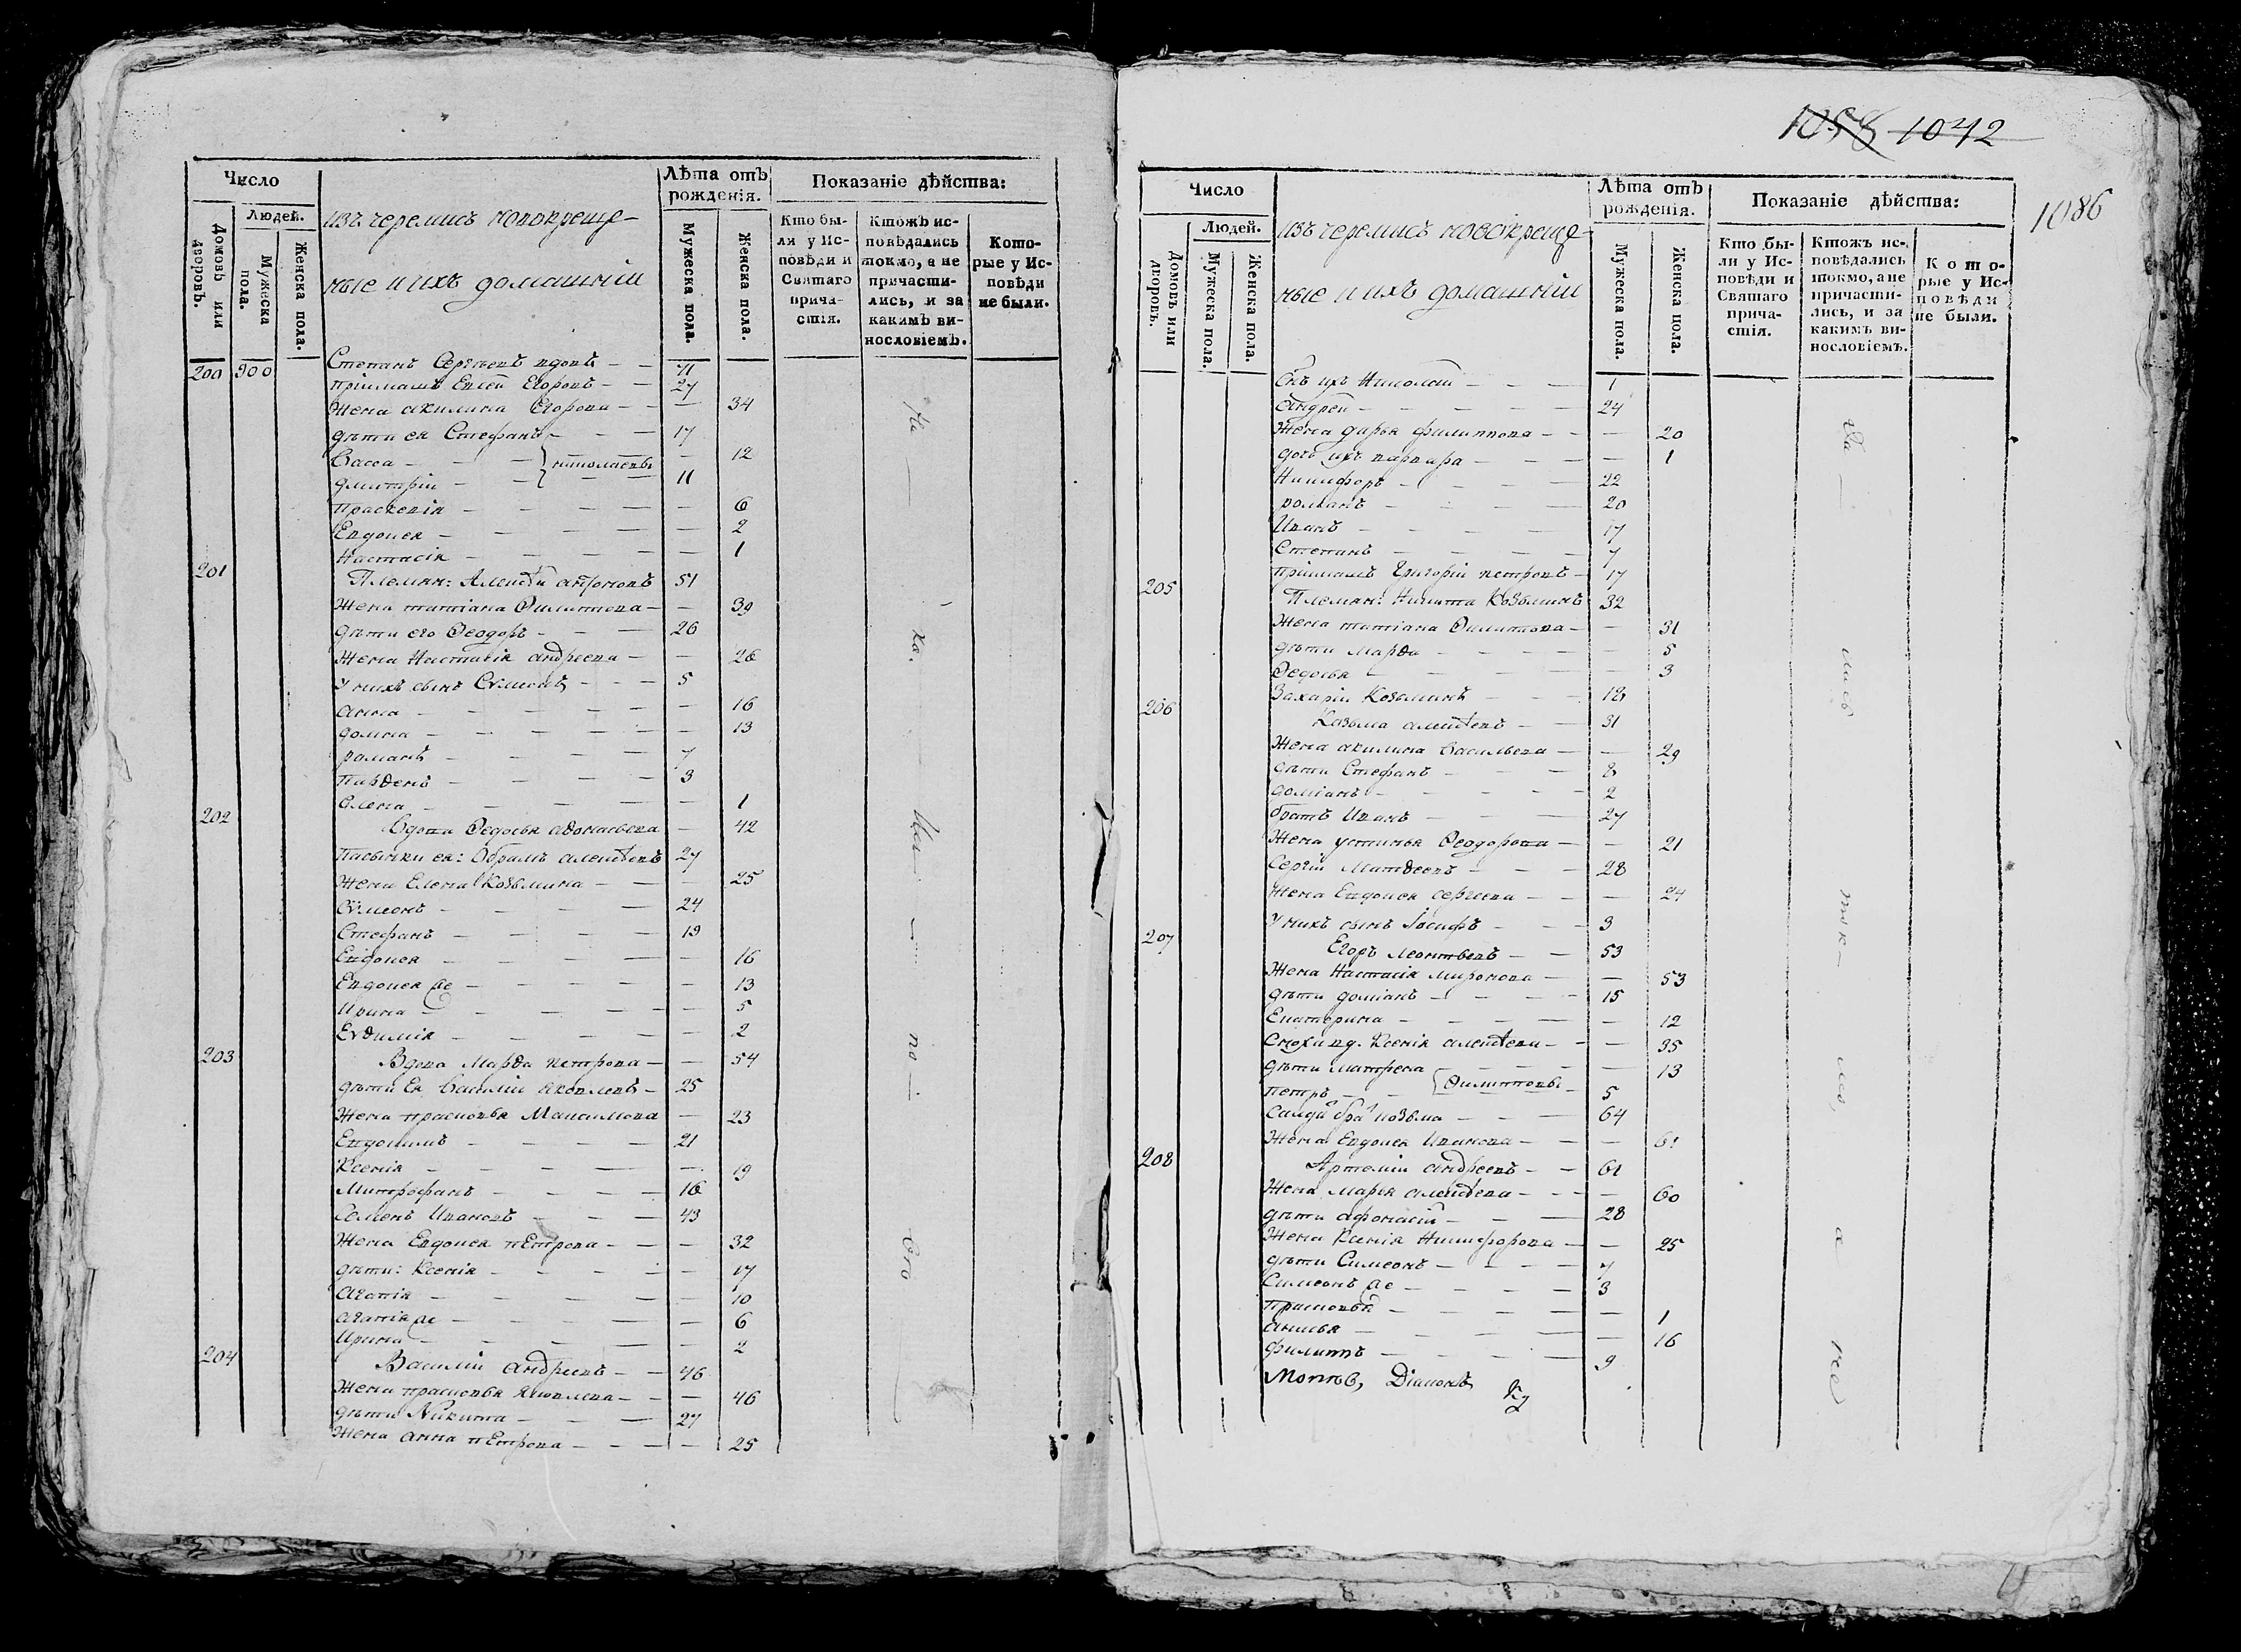 Число
Людей.
Домовъ или дворовъ.
Мужеска пола.
Женска пола.
изъ черемисъ новокреще-
ные и ихъ домашнiи
Лѣта отъ рожденiя.
Мужеска пола.
Женска пола.
Показанiе дѣйства:
Кто бы-
ли у Ис-
повѣди и
Святаго
прича-
стiя.
Ктожъ ис-
повѣдались
токмо, а не
причасти-
лись, и за
какимъ ви-
нословiемъ.
Кото-
рые у Ис-
повѣди
не были.
200 900 Степанъ Сергѣевъ вдовъ — — 71
прiимашъ Евсей Егоровъ — — 27
Жена акилина Егорова — — — 34
дѣти ея Стефанъ — — 17
Васса — — — 12
дмитрiи — — — 11
Праскевiя — — — — 6
Евдокея — — — — 2
Настасiя — — — — 1
201 Племян: Алексѣй 51
Жена татiана Ѳилипова — — 39
дѣти его Ѳеодоръ — — 26
Жена Настасiя андреева — — 26
У нихъ сынъ Сѵмеонъ — — 5
анна — — — — 16
домна — — — — 13
романъ — — — 7
Парѳенъ — — — 3
Елена — — — — 1
202 Вдова Ѳедосья аѳонасьева — 42
Пасынки ея: Абрамъ алексѣевъ 27
Жена Елена Козьмина — — 25
Сѵмеонъ — — — 24
Стефанъ — — — 19
Евдокея — — — — 16
Евдокея же — — — — 13
Ирина — — — — 5
Еѵѳимiя — — — — 2
203 Вдова Марѳа петрова — — 54
дѣти Ея Василiи яковлевъ — 25
Жена прасковья Максимова — 23
Евдокимъ — — — 21
Ксенiя — — — — 19
Митрофанъ — — — 16
Семенъ Ивановъ — — — 43
Жена Евдокея пЕтрова — — 32
дѣти: Ксенiя — — — — 17
Агапiя — — — — 10
агапiя же — — — — 6
Ирина — — — — 2
204 Василiи андреевъ — — 46
Жена прасковья яковлева — — 46
дѣти Никита — — — 27
Жена анна пЕтрова — — — 25
1058 1042
1086
Число
Людей.
Домовъ или дворовъ.
Мужеска пола.
Женска пола.
изъ черемисъ новокреще-
ные и ихъ домашнiи
Лѣта отъ рожденiя.
Мужеска пола.
Женска пола.
Показанiе дѣйства:
Кто бы-
ли у Ис-
повѣди и
Святаго
прича-
стiя.
Ктожъ ис-
повѣдались
токмо, а не
причасти-
лись, и за
какимъ ви-
нословiемъ.
Кото-
рые у Ис-
повѣди
не были.
Снъ ихъ Николай — — — 1
Андрей — — — 24
Жена дарья филиппова — — — 20
дочь ихъ варвара — — — 1
Никифоръ — — — 22
романъ — — — 20
Иванъ — — — 17
Степанъ — — — 7
прiимашъ Григорiи петровъ — 17
205 Племян: Никита Козьминъ 32
Жена татiана Ѳилипова — — 31
дѣти марѳа — — — 5
Ѳедосья — — — 3
Захарiи Козьминъ — — 18
206 Козьма алексѣевъ — — 31
Жена акилина васильева — — 29
дѣти Стефанъ — — — 8
домiанъ — — — 2
братъ Иванъ — — — 27
Жена устинья Ѳеодорова — — 21
Сергiи Матѳеевъ — — — 28
Жена Евдокея сергеева — — — 24
У нихъ сынъ Iосифъ — — — 3
207 Егоръ леонтьевъ — — 53
Жена Настасiя миронова — — 53
дѣти домiанъ — — — 15
Екатерина — — — — 12
Сноха вд. Ксенiя алексѣева — — 35
дѣти матрена — — — 13
петръ — — Ѳилиповы — 5
козьма — — — 64
Жена Евдокея Иванова — — — 61
208 Артемiи андреевъ — — 61
Жена марья алексѣева — — — 60
дѣти афонасiй — — — 28
Жена Ксенiя Никифорова — — 25
дѣти Симеонъ — — — 7
Симеонъ же — — — 3
прасковья — — — — 1
анисья — — — — 16
филиппъ — — — 9